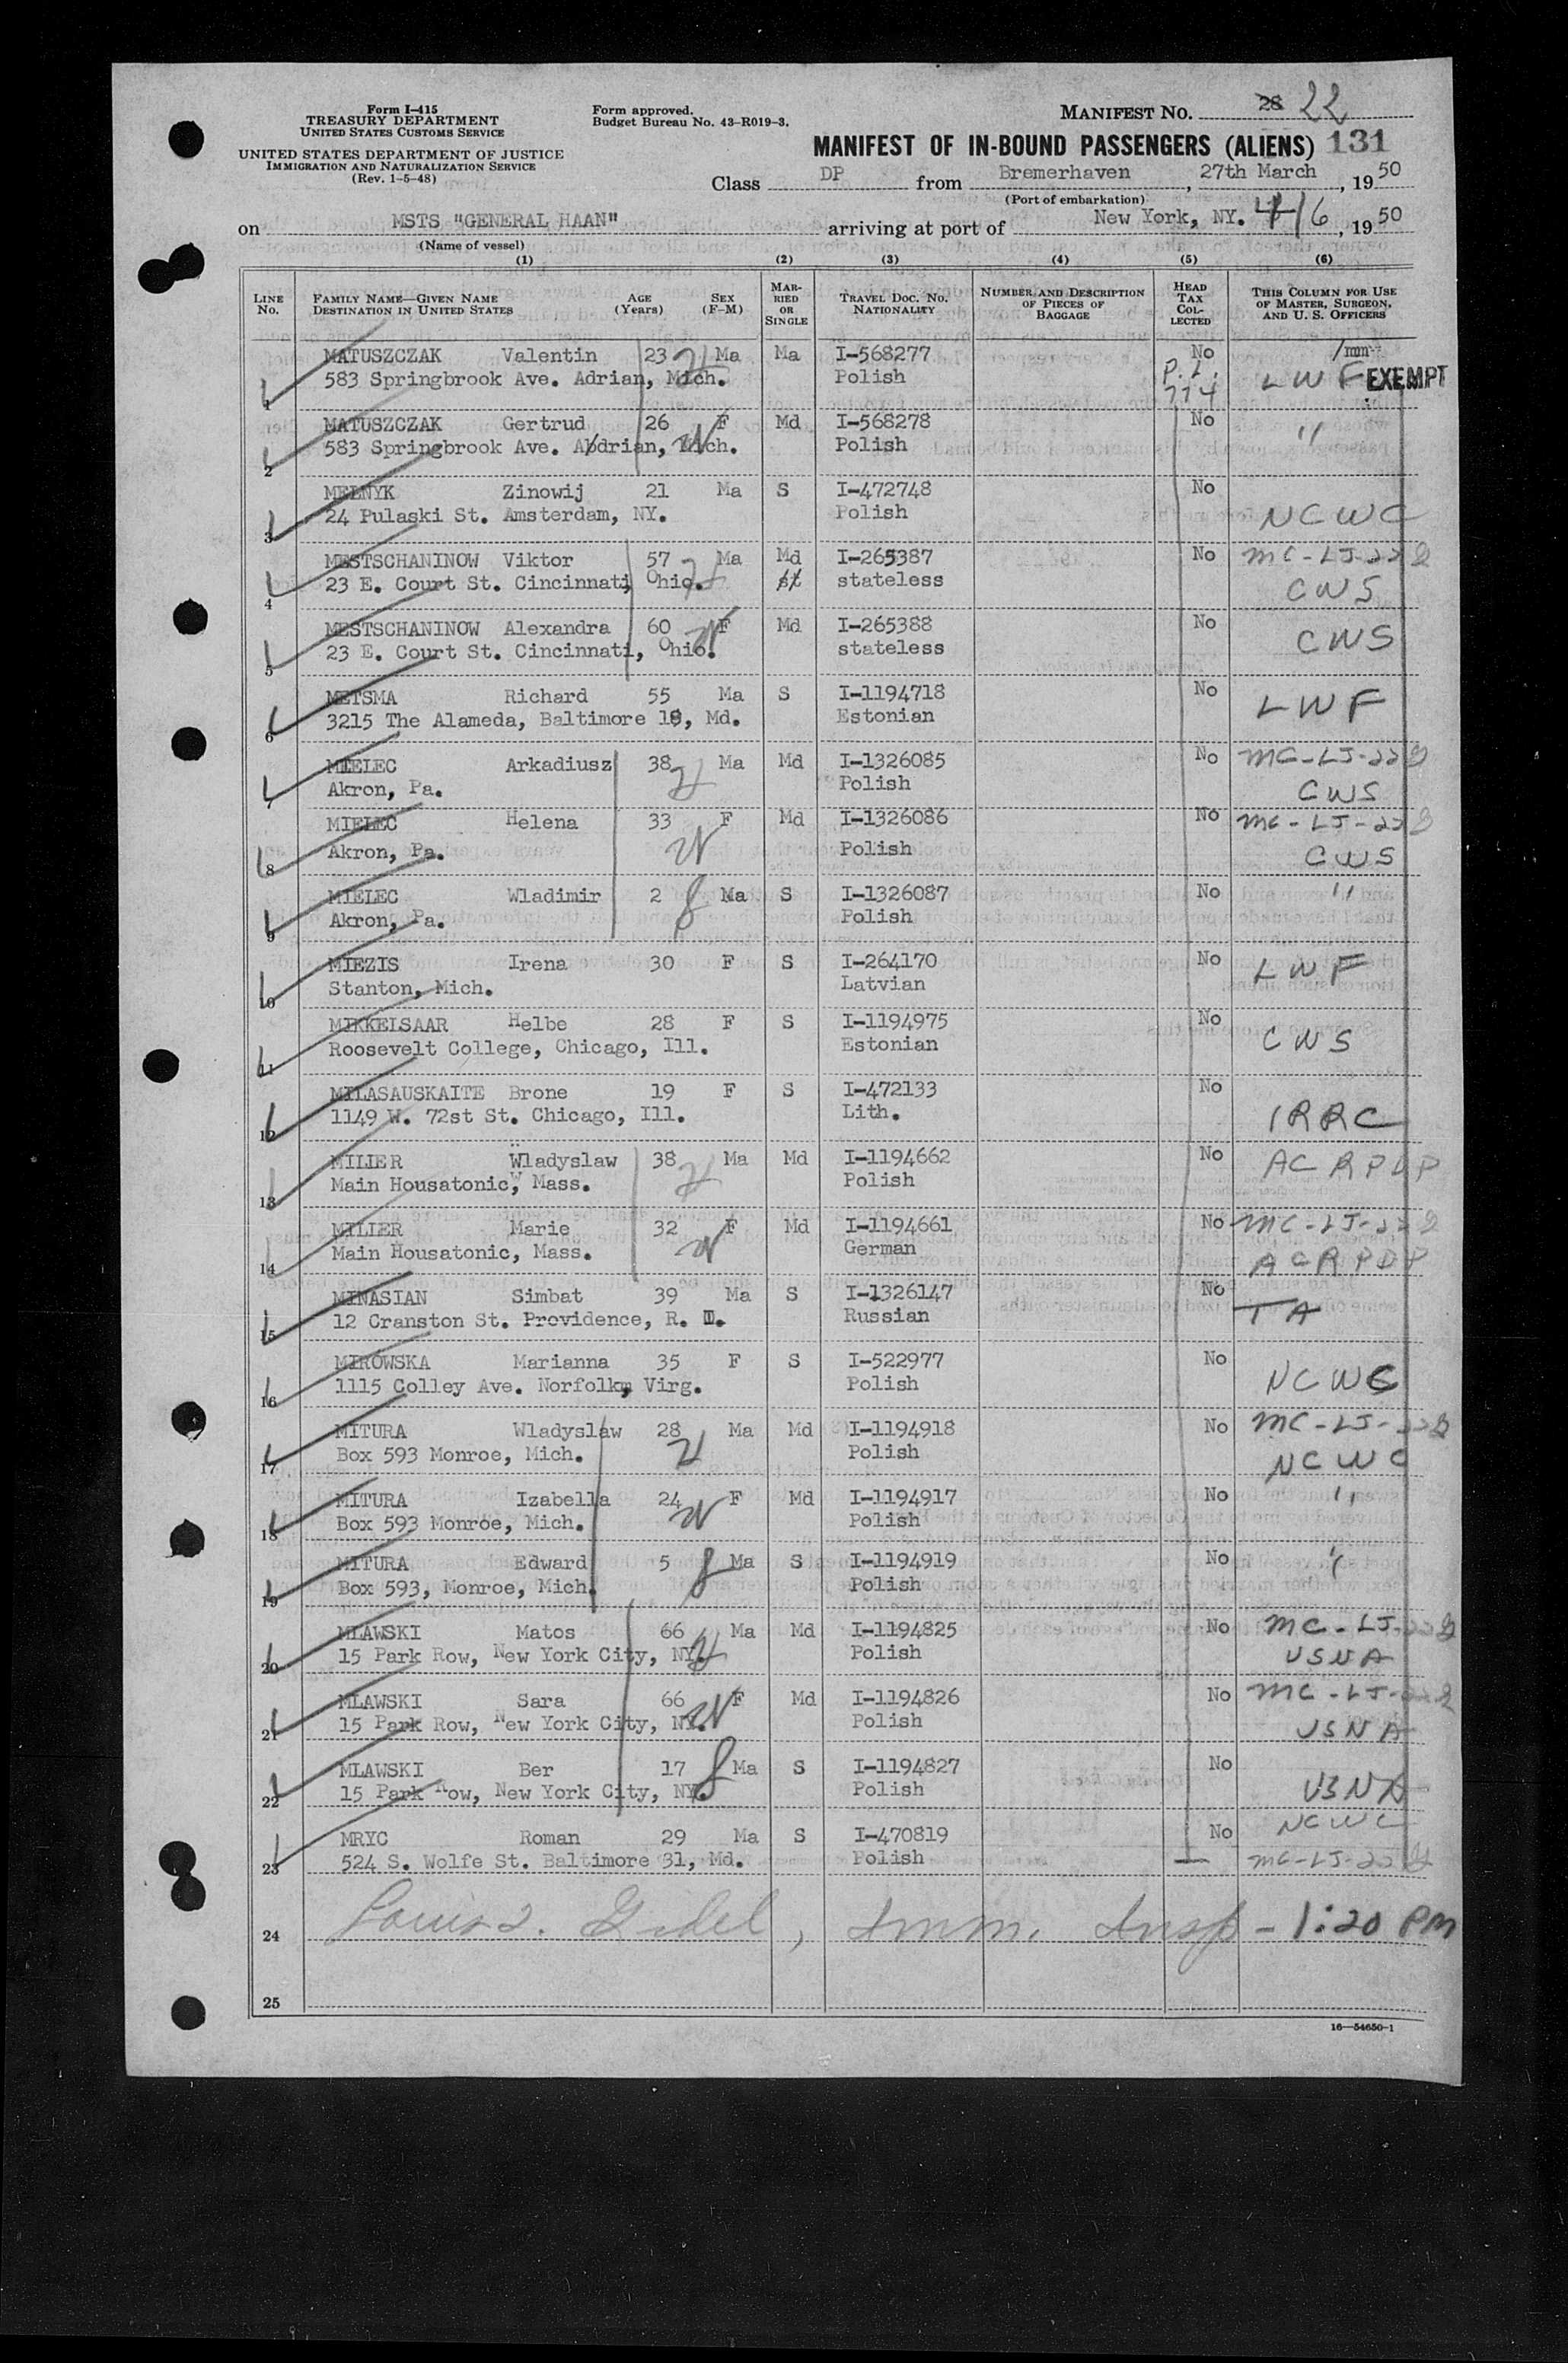 Form I-415
TREASURY DEPARTMENT
UNITED STATES CUSTOMS SERVICE
UNITED STATES DEPARTMENT OF JUSTICE
IMMIGRATION AND NATURALIZATION SERVICE
(Rev. 1-5-48)
Form approved.
Budget Bureau No. 43-R019-3.
MANIFEST NO. 28 22
MANIFEST OF IN-BOUND PASSENGERS (ALIENS) 131
Class DP from Bremerhaven, 27th March, 1950
(Port of embarkation)
on MSTS "GENERAL HAAN" arriving at port of New York, NY. 4/6, 1950
(Name of vessel)
(1) (2) (3) (4) (5) (6)
LINE NO. FAMILY NAME—GIVEN NAME DESTINATION IN UNITED STATES AGE (Years) SEX (F-M) MARRIED OR SINGLE TRAVEL DOC. NO. NATIONALITY NUMBER AND DESCRIPTION OF PIECES OF BAGGAGE HEAD TAX COLLECTED THIS COLUMN FOR USE OF MASTER, SURGEON, AND U. S. OFFICERS
1 MATUSZCZAK Valentin 23 Ma Ma I-568277 No
583 Springbrook Ave. Adrian, Mich. Polish P.L. 774 LWF EXEMPT
2 MATUSZCZAK Gertrud 26 F Md I-568278 No "
583 Springbrook Ave. Abdrian, Mich. Polish
3 MELNYK Zinowij 21 Ma S I-472748 No
24 Pulaski St. Amsterdam, NY. Polish NCWC
4 MESTSCHANINOW Viktor 57 Ma Md I-265387 No MC-LJ-22
23 E. Court St. Cincinnati, Ohio. st stateless CWS
5 MESTSCHANINOW Alexandra 60 F Md I-265388 No CWS
23 E. Court St. Cincinnati, Ohio. stateless
6 METSMA Richard 55 Ma S I-1194718 No LWF
3215 The Alameda, Baltimore 18, Md. Estonian
7 MIELEC Arkadiusz 38 Ma Md I-1326085 No MC-LJ-22
Akron, Pa. Polish CWS
8 MIELEC Helena 33 F Md I-1326086 No MC-LJ-22
Akron, Pa. Polish CWS
9 MIELEC Wladimir 2 Ma S I-1326087 No "
Akron, Pa. Polish
10 MIEZIS Irena 30 F S I-264170 No LWF
Stanton, Mich. Latvian
11 MIKKELSAAR Helbe 28 F S I-1194975 No CWS
Roosevelt College, Chicago, Ill. Estonian
12 MILASAUSKAITE Brone 19 F S I-472133 No
1149 W. 72st St. Chicago, Ill. Lith. IRRC
13 MILIER Wladyslaw 38 Ma Md I-1194662 No ACRPDP
Main Housatonic, Mass. Polish
14 MILIER Marie 32 F Md I-1194661 No MC-LJ-22
Main Housatonic, Mass. German ACRPDP
15 MINASIAN Simbat 39 Ma S I-1326147 No TA
12 Cranston St. Providence, R. I. Russian
16 MIROWSKA Marianna 35 F S I-522977 No
1115 Colley Ave. Norfolk, Virg. Polish NCWC
17 MITURA Wladyslaw 28 Ma Md I-1194918 No MC-LJ-22
Box 593 Monroe, Mich. Polish NCWC
18 MITURA Izabella 24 F Md I-1194917 No "
Box 593 Monroe, Mich. Polish
19 MITURA Edward 5 Ma S I-1194919 No "
Box 593, Monroe, Mich. Polish
20 MLAWSKI Matos 66 Ma Md I-1194825 No MC-LJ-22
15 Park Row, New York City, NY. Polish USNA
21 MLAWSKI Sara 66 F Md I-1194826 No MC-LJ-22
15 Park Row, New York City, NY. Polish USNA
22 MLAWSKI Ber 17 Ma S I-1194827 No
15 Park Row, New York City, NY. Polish USNA
23 MRYC Roman 29 Ma S I-470819 No NCWC
524 S. Wolfe St. Baltimore 31, Md. Polish MC-LJ-22
24 Louis, Imm. Insp - 1:20 PM
25
16—54650-1